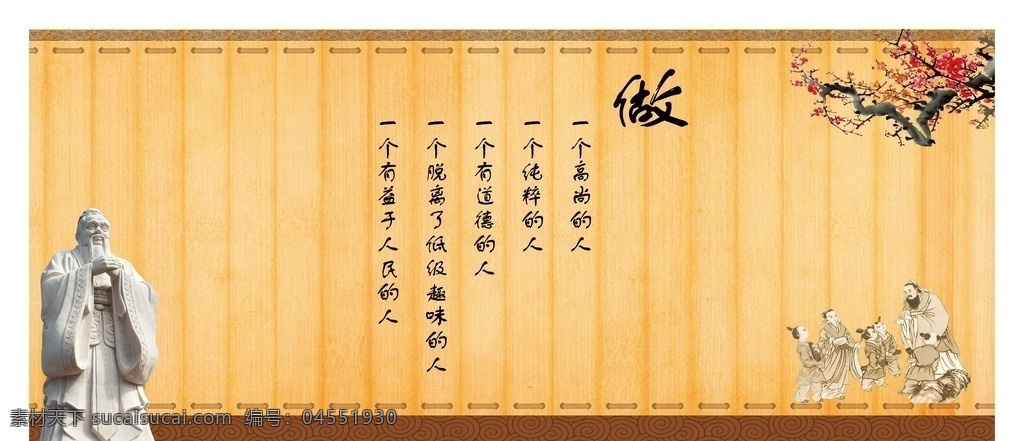 做
一个高尚的人
一个纯粹的人
一个有道德的人
一个脱离了低级趣味的人
一个有益于人民的人
素材天下 sucaisucai.com 编号：04551930